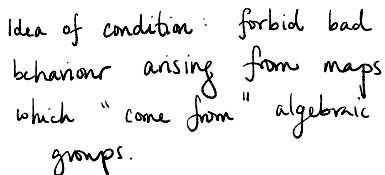 Idea of condition: forbid bad
behaviour arising from maps
which "come from" algebraic
groups.